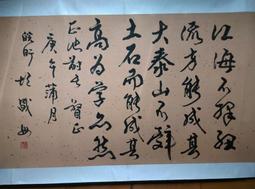 江海不擇細
流方能成其
大泰山不辤
土石而能成其
高为学亦然
正
庚午蒲月